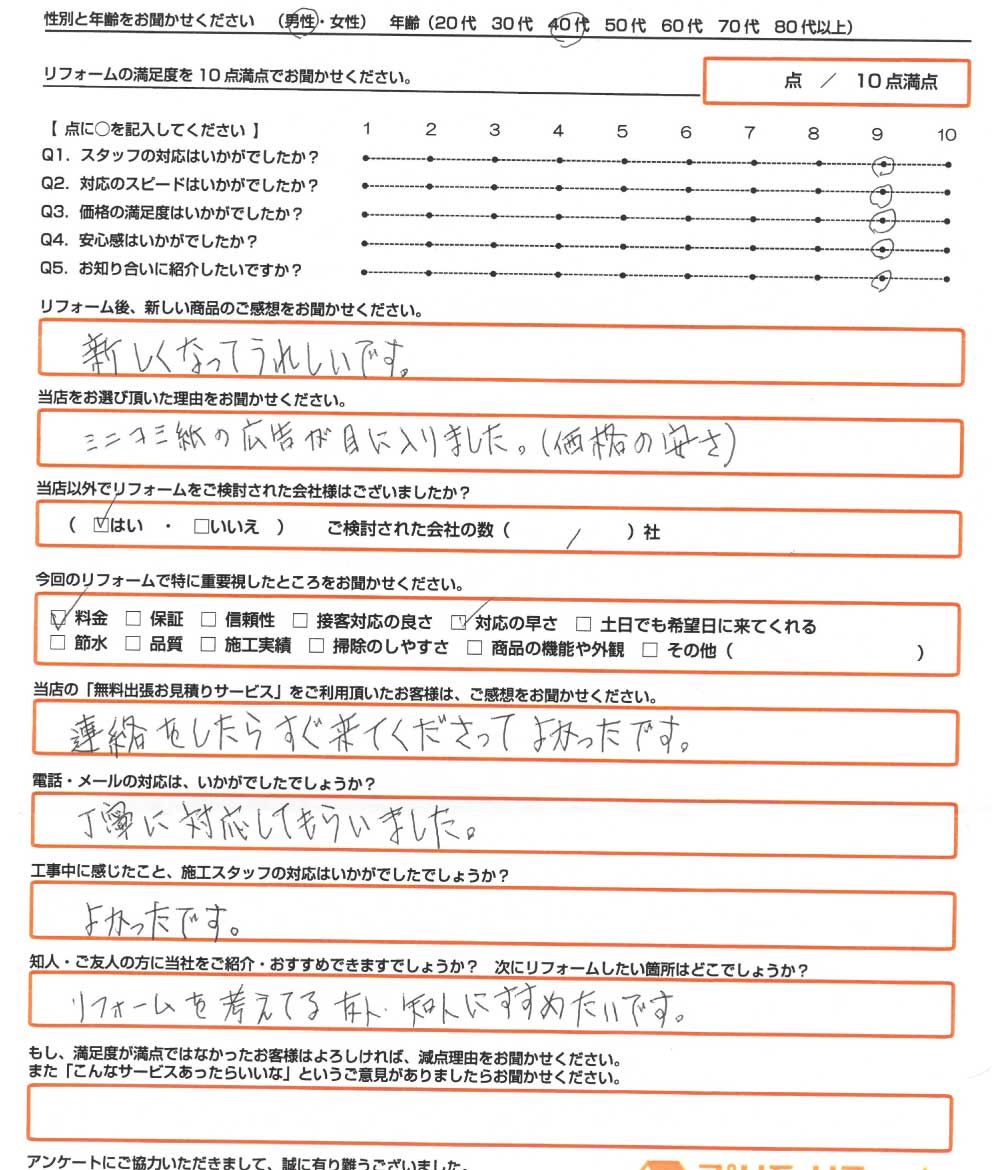 性別と年齢をお聞かせください （男性・女性） 年齢（20代 30代 40代 50代 60代 70代 80代以上）
リフォームの満足度を10点満点でお聞かせください。 点 ／ 10点満点
【 点に○を記入してください 】 1 2 3 4 5 6 7 8 9 10
Q1. スタッフの対応はいかがでしたか？
Q2. 対応のスピードはいかがでしたか？
Q3. 価格の満足度はいかがでしたか？
Q4. 安心感はいかがでしたか？
Q5. お知り合いに紹介したいですか？
リフォーム後、新しい商品のご感想をお聞かせください。
新しくなってうれしいです。
当店をお選び頂いた理由をお聞かせください。
ミニコミ紙の広告が目に入りました。(価格の安さ)
当店以外でリフォームをご検討された会社様はございましたか？
（ ☑はい ・ □いいえ ） ご検討された会社の数（ / ）社
今回のリフォームで特に重要視したところをお聞かせください。
☑ 料金 □ 保証 □ 信頼性 □ 接客対応の良さ ☑ 対応の早さ □ 土日でも希望日に来てくれる
□ 節水 □ 品質 □ 施工実績 □ 掃除のしやすさ □ 商品の機能や外観 □ その他（ ）
当店の「無料出張お見積りサービス」をご利用頂いたお客様は、ご感想をお聞かせください。
連絡をしたらすぐ来てくださってよかったです。
電話・メールの対応は、いかがでしたでしょうか？
丁寧に対応してもらいました。
工事中に感じたこと、施工スタッフの対応はいかがでしたでしょうか？
よかったです。
知人・ご友人の方に当社をご紹介・おすすめできますでしょうか？ 次にリフォームしたい箇所はどこでしょうか？
リフォームを考えてる友人・知人にすすめたいです。
もし、満足度が満点ではなかったお客様はよろしければ、減点理由をお聞かせください。
また「こんなサービスあったらいいな」というご意見がありましたらお聞かせください。
アンケートにご協力いただきまして、誠に有り難うございました。